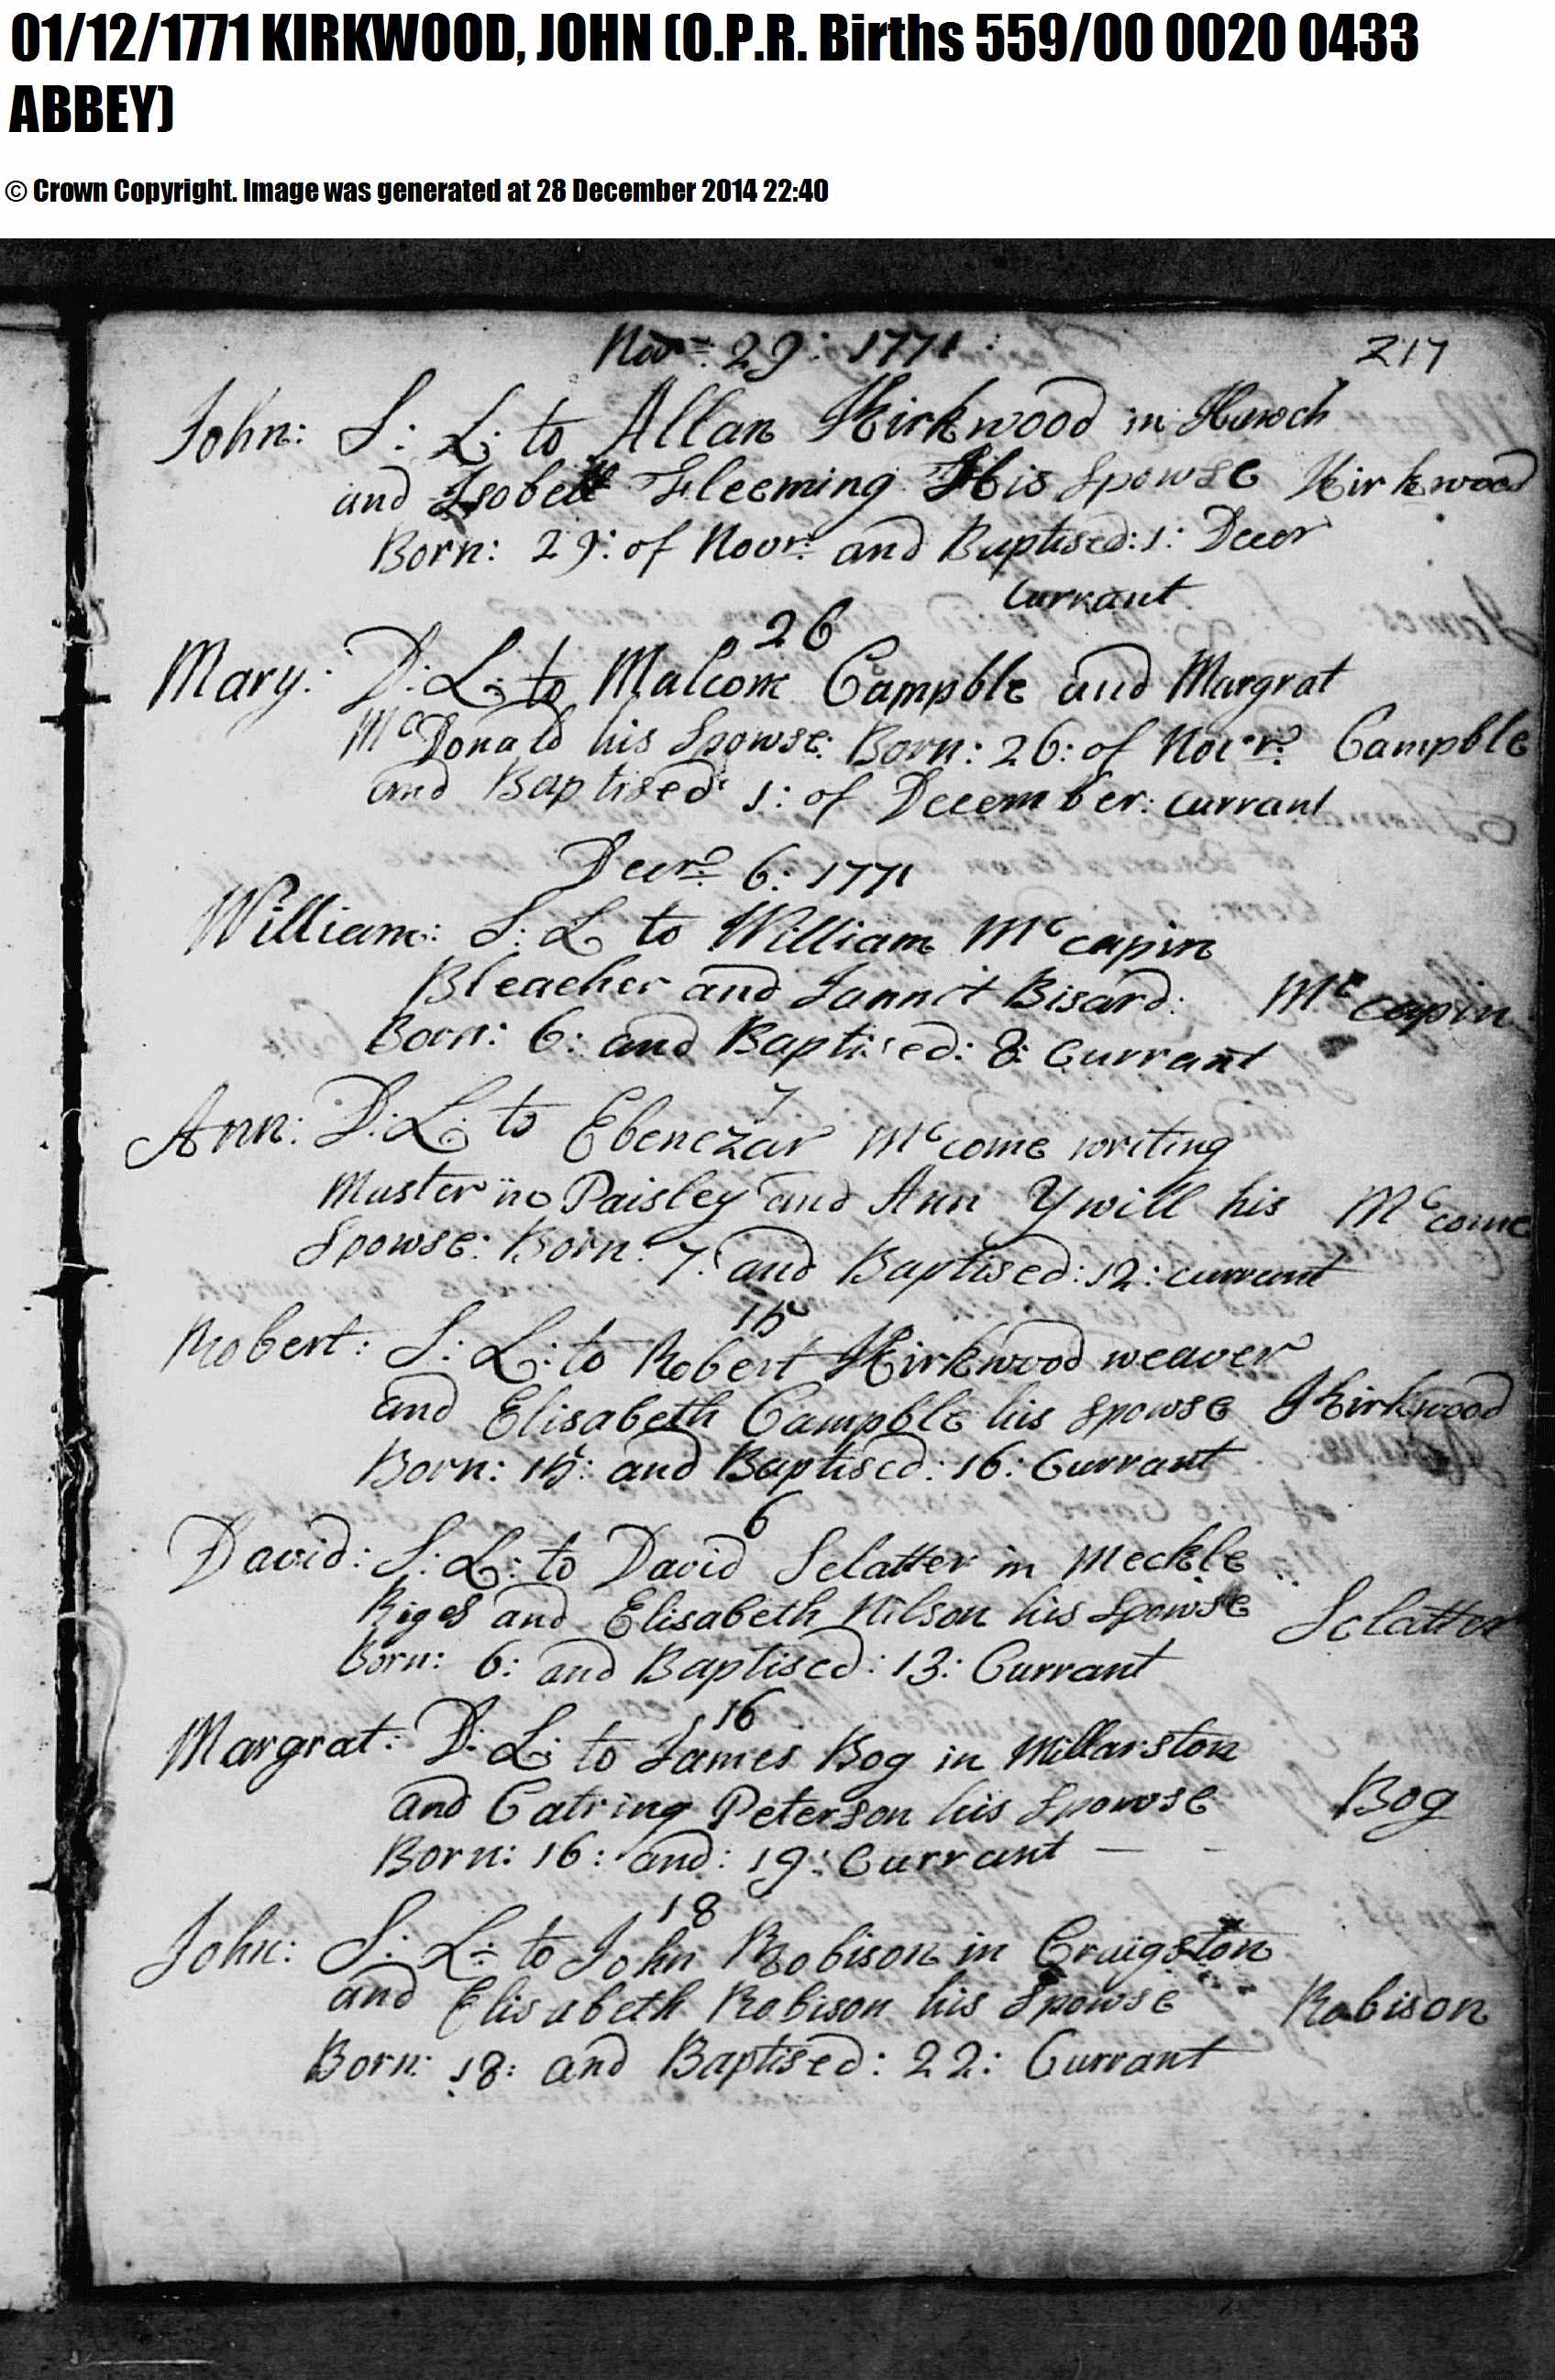 01/12/1771 KIRKWOOD, JOHN (O.P.R. Births 559/00 0020 0433
ABBEY)
© Crown Copyright. Image was generated at 28 December 2014 22:40
Novr: 29: 1771: 217
John: S: L: to Allan Kirkwood in
and Isobell Fleeming His Spowse Kirkwood
Born: 29: of Novr: and Baptised: 1: Decer
Currant
26
Mary: D: L: to Malcom Campble and Margrat
McDonald his Spowse: Born: 26: of Novr: Campble
and Baptised 1: of December: currant
Decr: 6: 1771
William: S: L to William Mccapin
Bleacher and Jannit Bisard: Mccapin
Born: 6: and Baptised: 8: Currant
7
Ann: D: L: to Ebenezar Mccome writing
Master in Paisley and Ann Ywill his Mccome
Spowse: Born: 7: and Baptised: 12: currant
15
Robert: S: L: to Robert Kirkwood weaver
and Elisabeth Campble his spowse Kirkwood
Born: 15: and Baptised: 16: Currant
6
David: S: L: to David Sclatter in Meckle
Riggs and Elisabeth Nilson his Spowse Sclatter
Born: 6: and Baptised: 13: Currant
16
Margrat: D: L: to James Bog in Millarston
and Catring Peterson his Spowse Bog
Born: 16: and: 19: Currant — -
18
John: S: L: to John Robison in Craigston
and Elisabeth Robison his Spowse Robison
Born: 18: and Baptised: 22: Currant